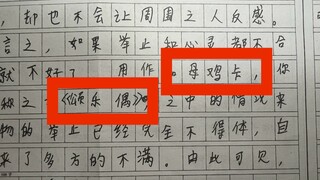 ，却也不会让周围之人反感。
言之，如果举止和心灵都不合
就不好了。用作。母鸡卡，你
称之《颂乐偶》。之中的情况来
物的举止已经完全不得体，自
来了多方的不满。由此可见，